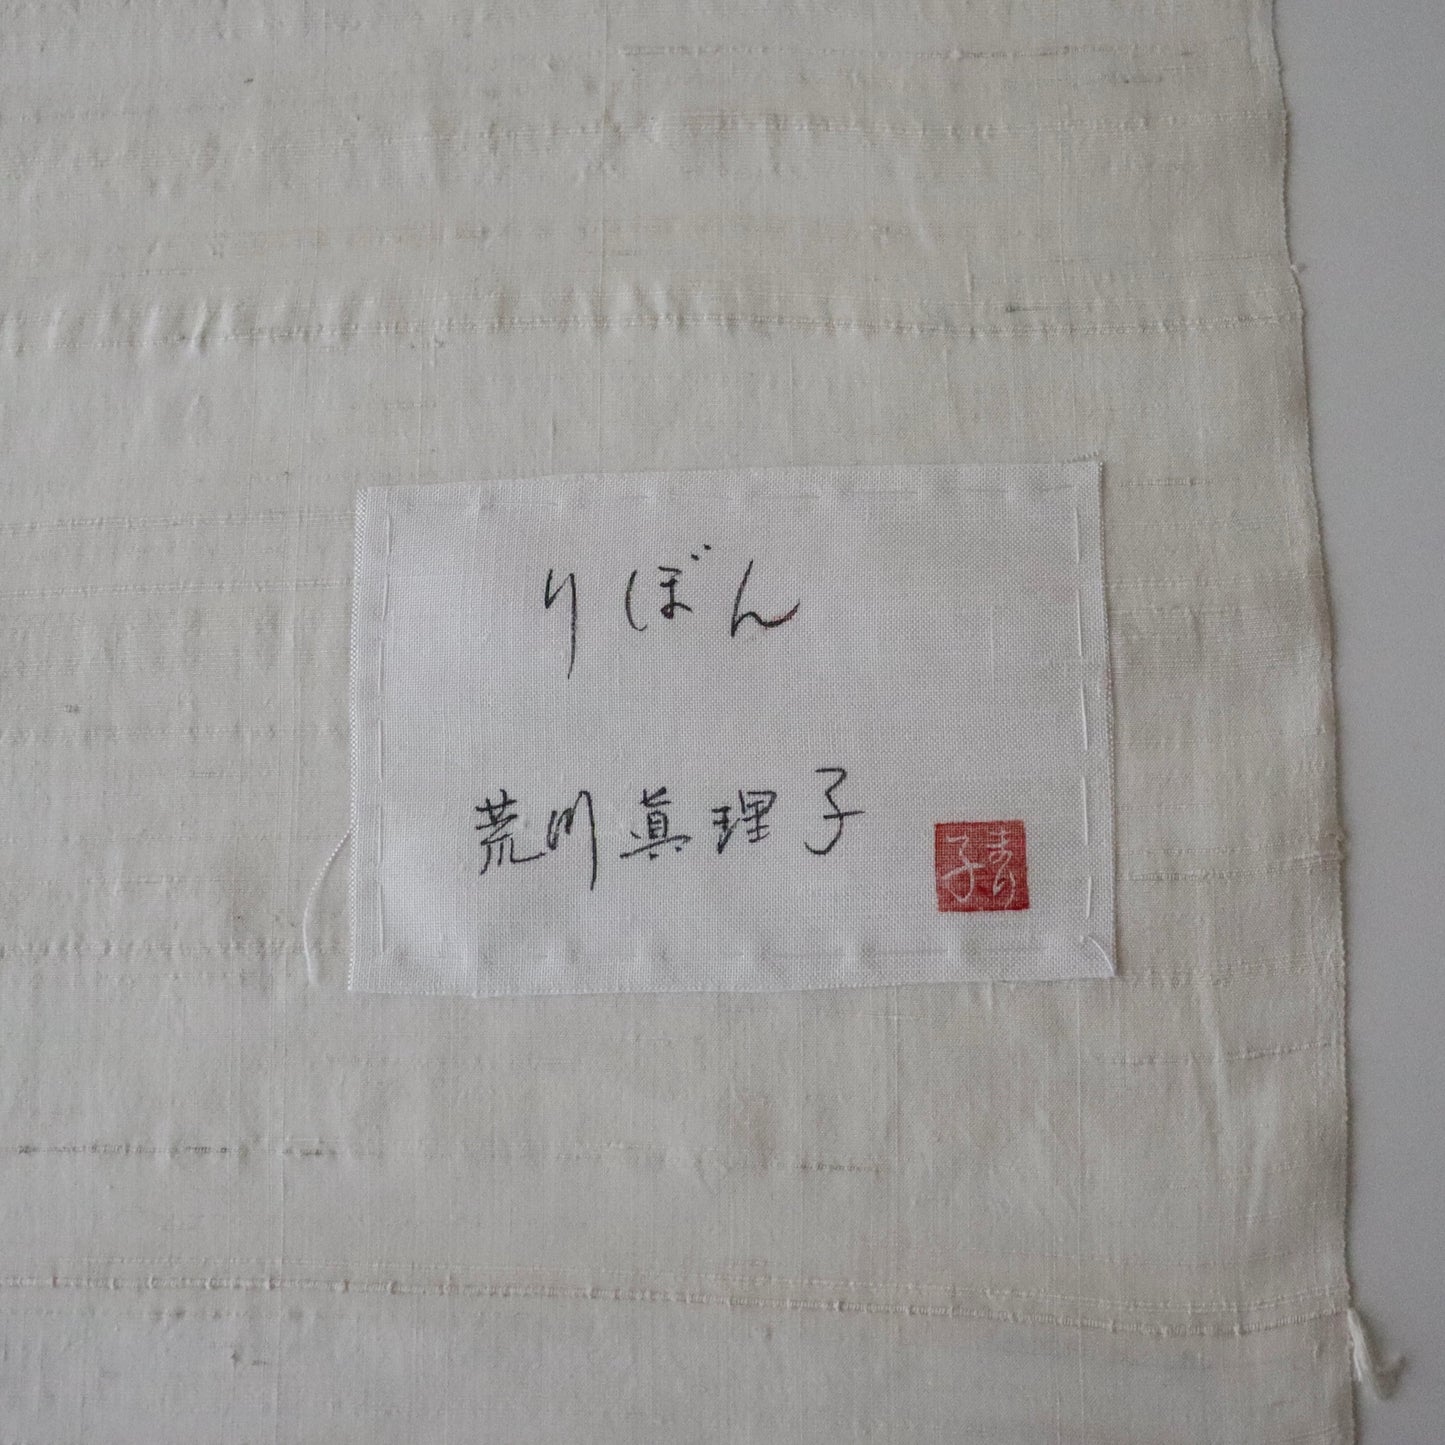 りぼん
荒川眞理子
まり子